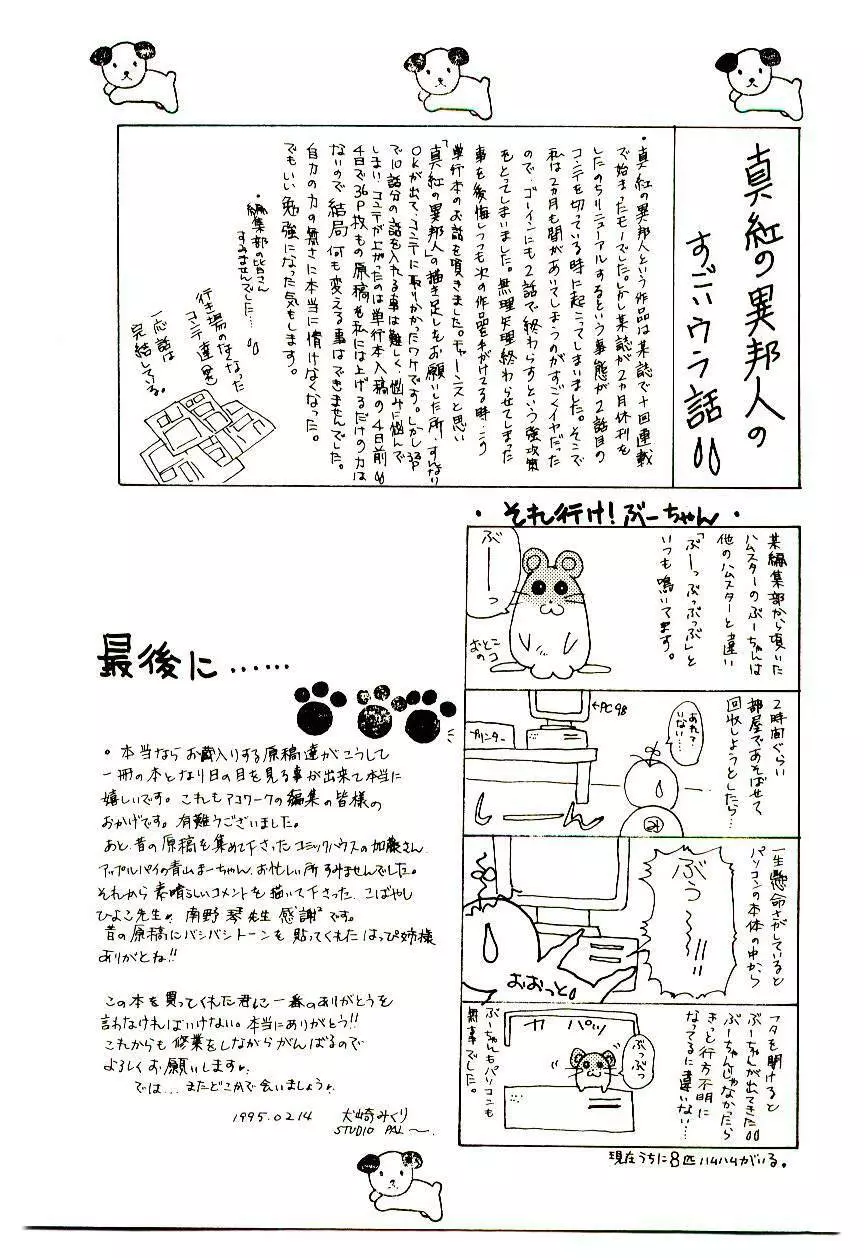 真紅の異邦人の
すごいウラ話
・真紅の異邦人という作品は某誌で十回連載
で始まったモノでした。しかし某誌が2ヵ月休刊を
したのちリニューアルするという事態が2話目の
コンテを切っている時に起こってしまいました。そこで
私は2ヵ月も間があいてしまうのがすごくイヤだった
ので、ゴーインにも2話で終わらすという強攻策
をとってしまいました。無理矢理終わらせてしまった
事を後悔しつつも次の作品を手がけてる時、この
単行本のお話を頂きました。チャーンスと思い
「真紅の異邦人」の描き足しをお願いした所、すんなり
OKが出て、コンテに取りかかったワケです。しかし33P
で10話分の話を入れる事は難しく、悩みに悩んで
しまい、コンテが上がったのは単行本入稿の4日前
4日で36P枚もの原稿を私には上げるだけの力は
ないので結局何も変える事はできませんでした。
自分の力の無さに本当に情けなくなった。
でもいい勉強になった気もします。
・編集部の皆さん
すみませんでした…
行き場のなくなった
コンテ達
一応話は
完結している。
・それ行け!ぶーちゃん・
某編集部から頂いた
ハムスターのぶーちゃんは
他のハムスターと違い
「ぷーっぷっぷっぷ」と
いつも鳴いてます。
ぶーーっ
おとこ
のコ
2時間ぐらい
部屋であそばせて
回収しようとしたら…
←PC98
プリンター
あれ?
いない…
しーーん
一生懸命さがしていると
パソコンの本体の中から
ぶぅ〜〜!!
おおっと
フタを開けると
ぶーちゃんが出てきた
ぶーちゃんじゃなかったら
きっと行方不明に
なってるに違いない…
カパッ
ぶっぶっ
ぶーちゃんもパソコンも
無事でした。
現在うちに8匹ハムハムがいる。
最後に……
・本当ならお蔵入りする原稿達がこうして
一冊の本となり日の目を見る事が出来て本当に
嬉しいです。これもアコワークの編集の皆様の
おかげです。有難うございました。
あと、昔の原稿を集めて下さったコミックハウスの加藤さん、
アップルパイの青山まーちゃん、お忙しい所すみませんでした。
それから素晴らしいコメントを描いて下さった、こばやし
ひよこ先生、南野琴先生感謝²です。
昔の原稿にバシバシトーンを貼ってくれたはっぴ姉様
ありがとね!!
この本を買ってくれた君に一番のありがとうを
言わなければいけない。本当にありがとう!!
これからも修業をしながらがんばるので
よろしくお願いします。
では…またどこかで会いましょう。
1995.02.14 犬崎みくり
STUDIO PAL〜